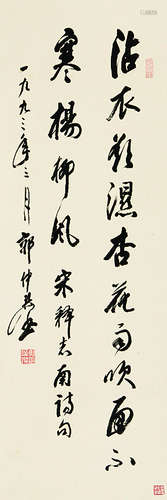 沾衣欲濕杏花雨吹面不
寒楊柳風 宋釋志南詩句
一九九三年三月 郭仲選